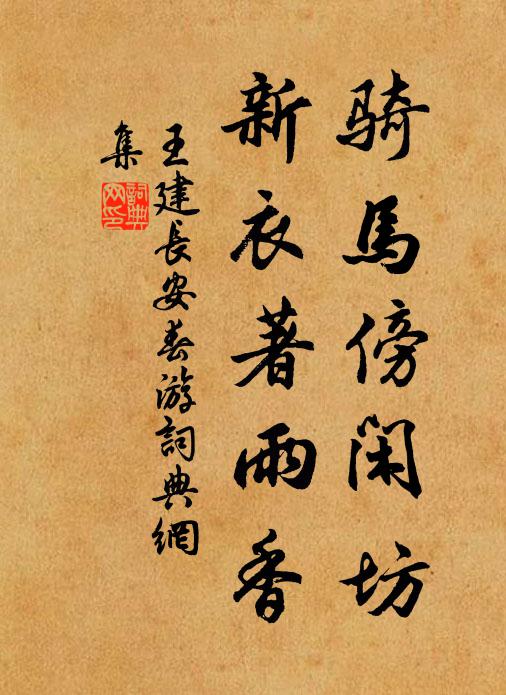 騎馬傍閑坊
新衣著雨香
王建長安春游詞典網
集
詞典網印